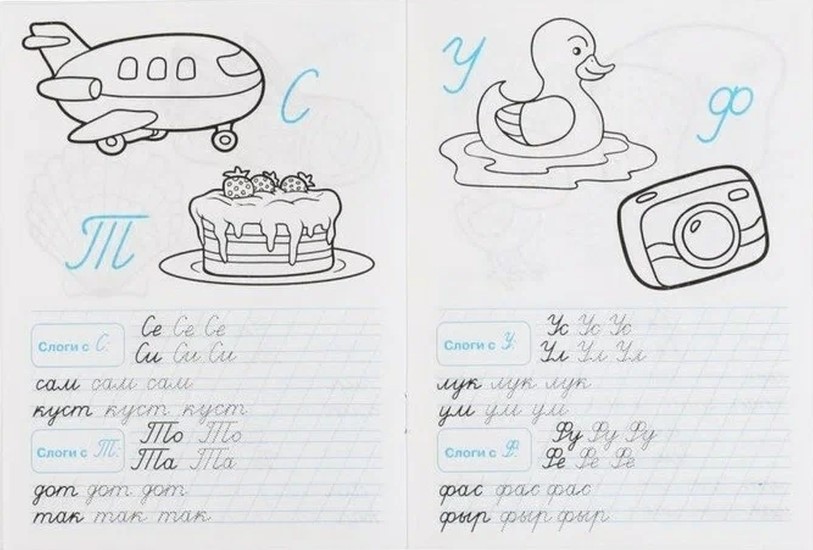 С
Т
Слоги с С:
Се Се Се
Си Си Си
сам сам сам
куст куст куст
Слоги с Т:
То То
Та Та
дот дот дот
так так так
У
Ф
Слоги с У:
Ус Ус Ус
Ул Ул Ул
лук лук лук
ум ум ум
Слоги с Ф:
Фу Фу Фу
Фе Фе Фе
фас фас фас
фыр фыр фыр